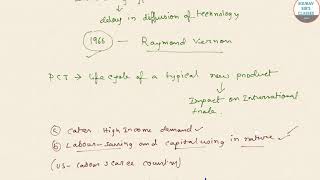 delay in diffusion of technology
1966 → Raymond Vernon
PCT → life cycle of a typical new product
Impact on International
trade.
a) Cater High Income demand ✓
b) Labour-saving and capital using in nature ✓
(US - Labour scarce country)
SOURAV
SIR'S
CLASSES